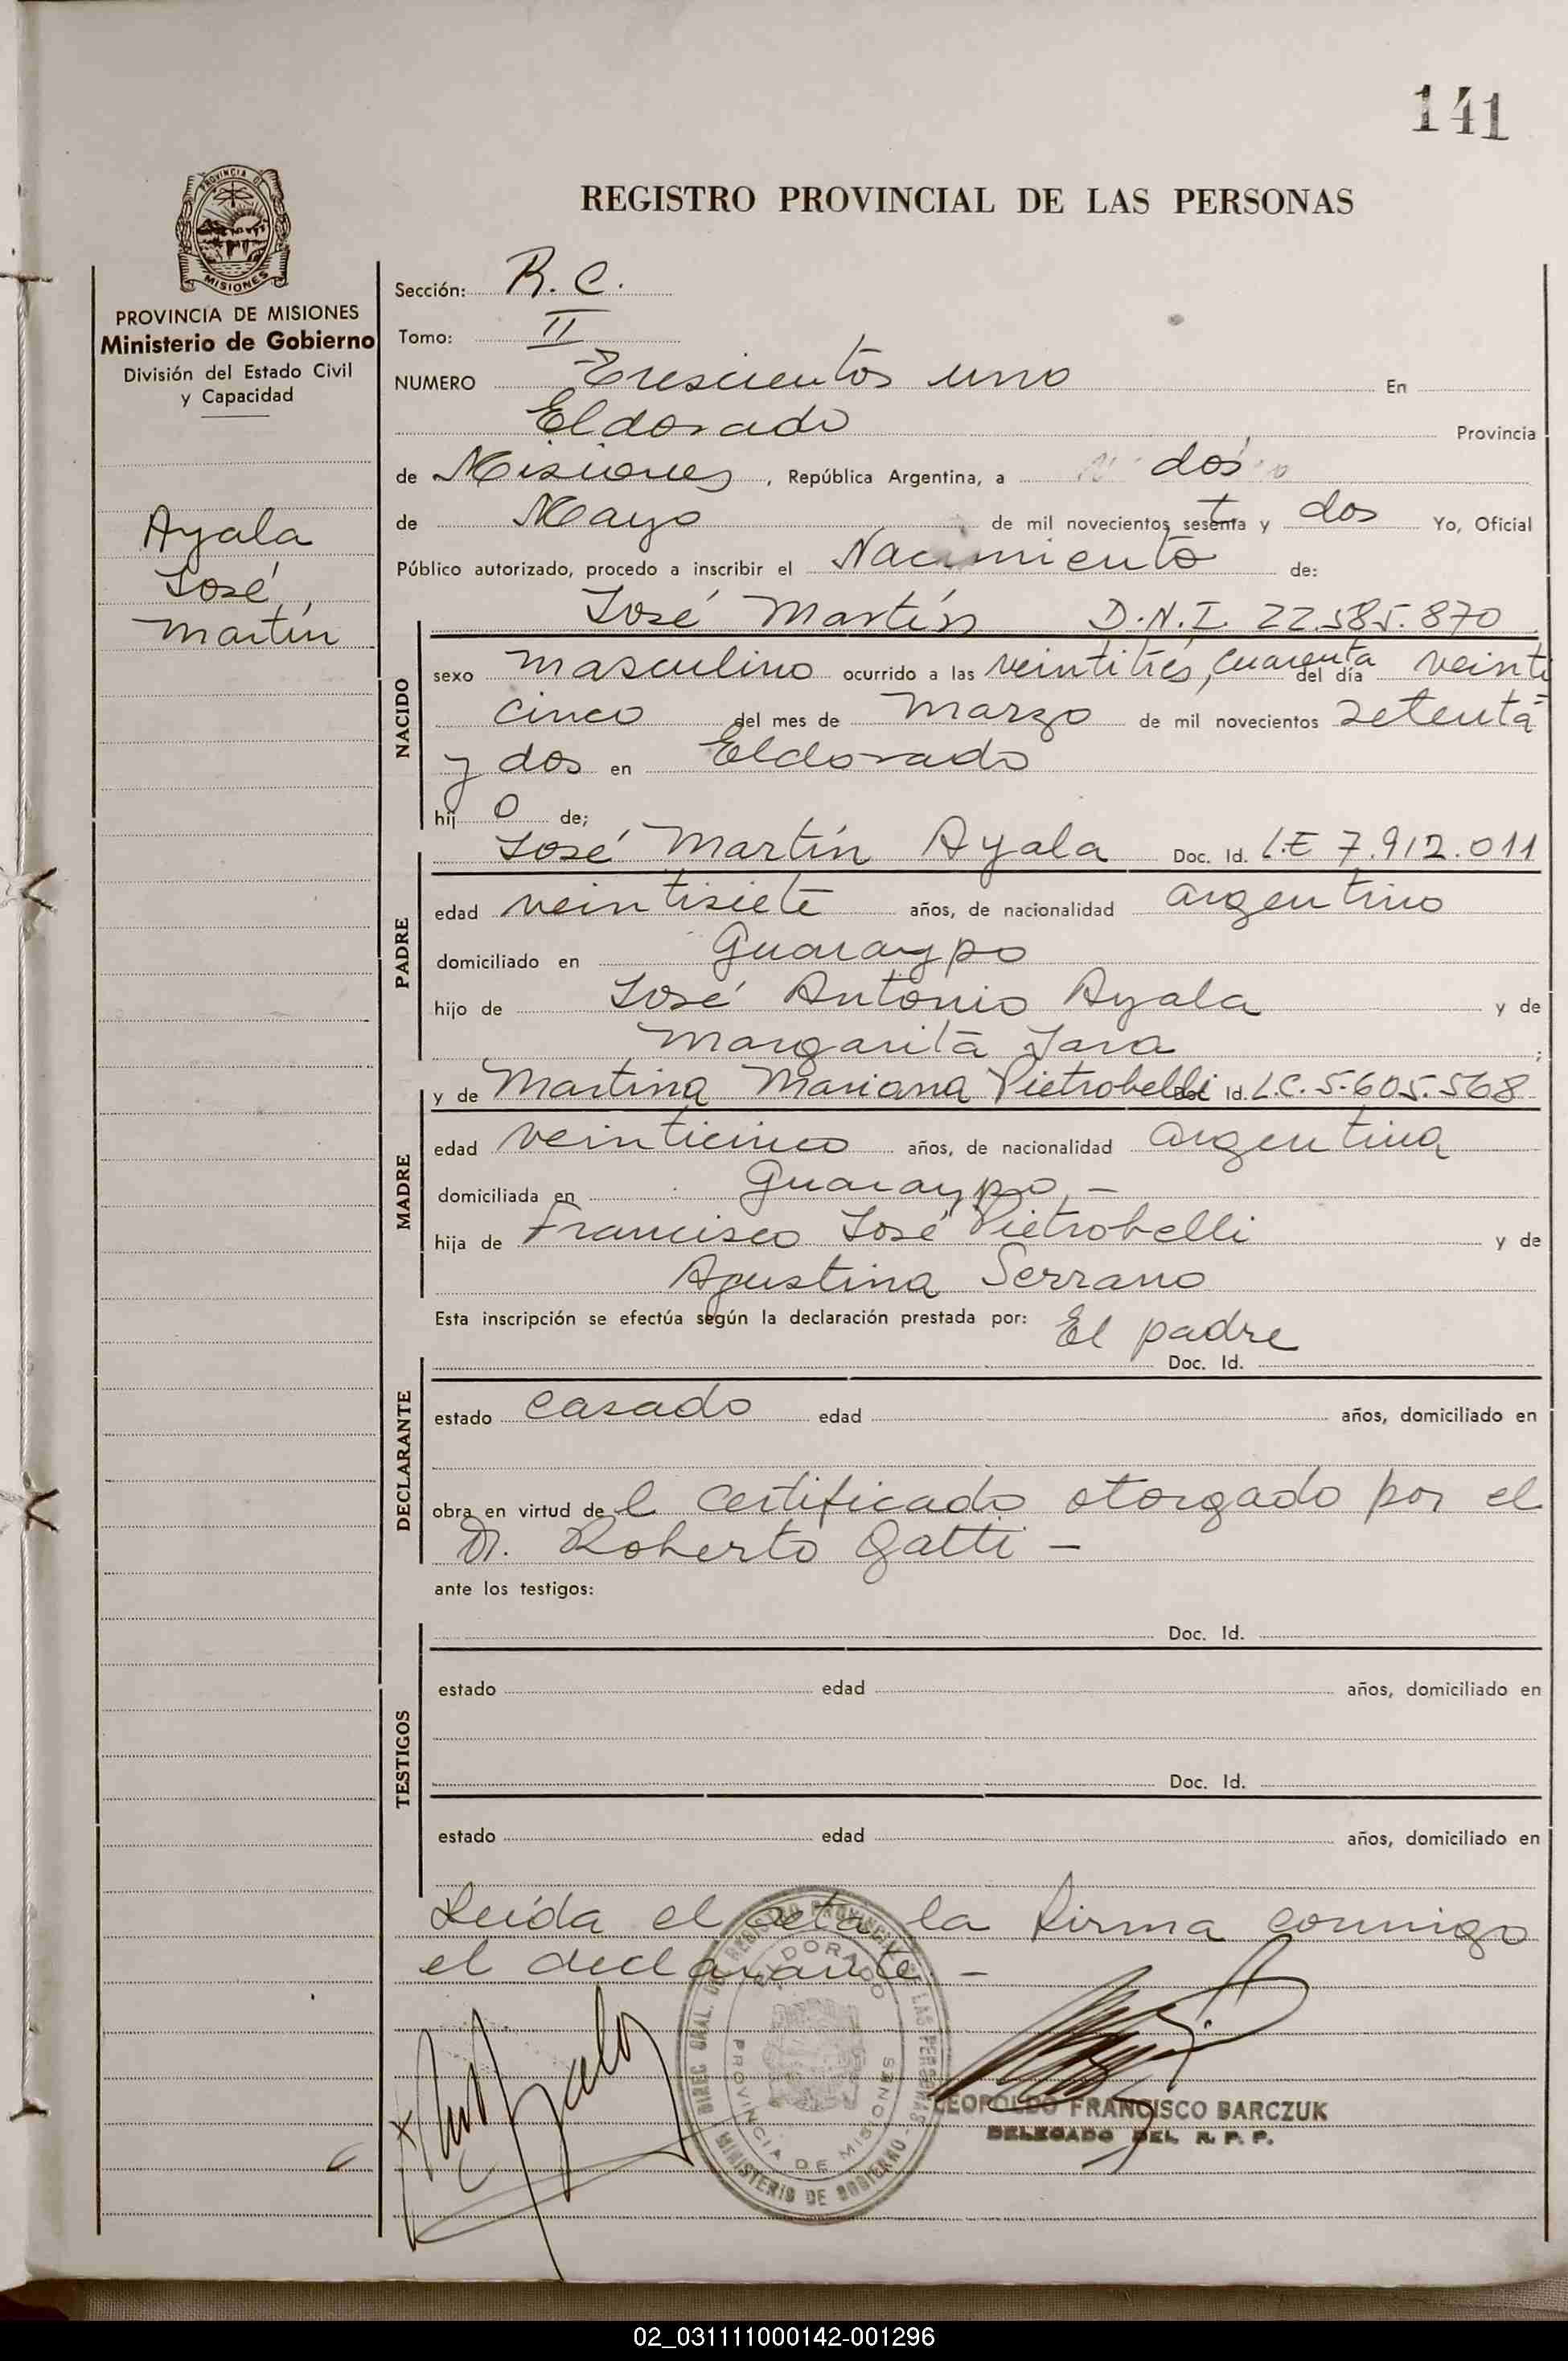 141
PROVINCIA DE
MISIONES
PROVINCIA DE MISIONES
Ministerio de Gobierno
División del Estado Civil
y Capacidad
Ayala
José
Martín
REGISTRO PROVINCIAL DE LAS PERSONAS
Sección: R. C.
Tomo: II
NUMERO Trescientos uno En
Eldorado Provincia
de Misiones, República Argentina, a dos
de Mayo de mil novecientos setenta y dos Yo, Oficial
Público autorizado, procedo a inscribir el Nacimiento de:
José Martín D.N.I. 22.585.870
NACIDO
sexo masculino ocurrido a las veintitrés, cuarenta del día veinti
cinco del mes de marzo de mil novecientos setenta
y dos en Eldorado
hijo de;
José Martín Ayala Doc. Id. L.E 7.912.011
PADRE
edad veintisiete años, de nacionalidad argentino
domiciliado en Guaraypo
hijo de José Antonio Ayala y de
Margarita Jara ;
y de Martina Mariana Pietrobelli Doc. Id. L.C. 5.605.568
MADRE
edad veinticinco años, de nacionalidad argentina
domiciliada en Guaraypo, -
hija de Francisco José Pietrobelli y de
Agustina Serrano
Esta inscripción se efectúa según la declaración prestada por: El padre
Doc. Id.
DECLARANTE
estado casado edad años, domiciliado en
obra en virtud de l certificado otorgado por el
Dr. Roberto Gatti -
ante los testigos:
Doc. Id.
TESTIGOS
estado edad años, domiciliado en
Doc. Id.
estado edad años, domiciliado en
Leída el acta la firma conmigo
el declarante -
DIREC. GRAL. DEL REGISTRO PROVINCIAL DE LAS PERSONAS
ELDORADO
PROVINCIA DE MISIONES
MINISTERIO DE GOBIERNO
LEOPOLDO FRANCISCO BARCZUK
DELEGADO DEL R. P. P.
02_031111000142-001296